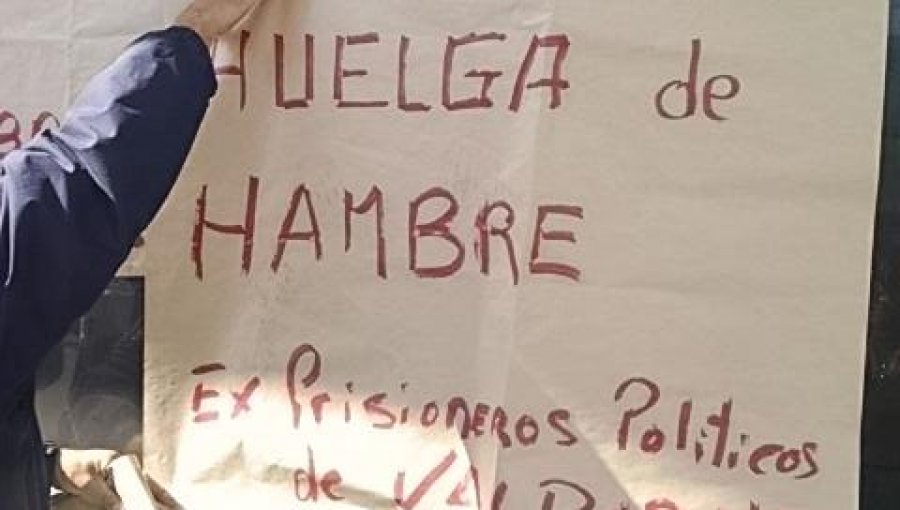 HUELGA de
HAMBRE
Ex Prisioneros Politicos
de